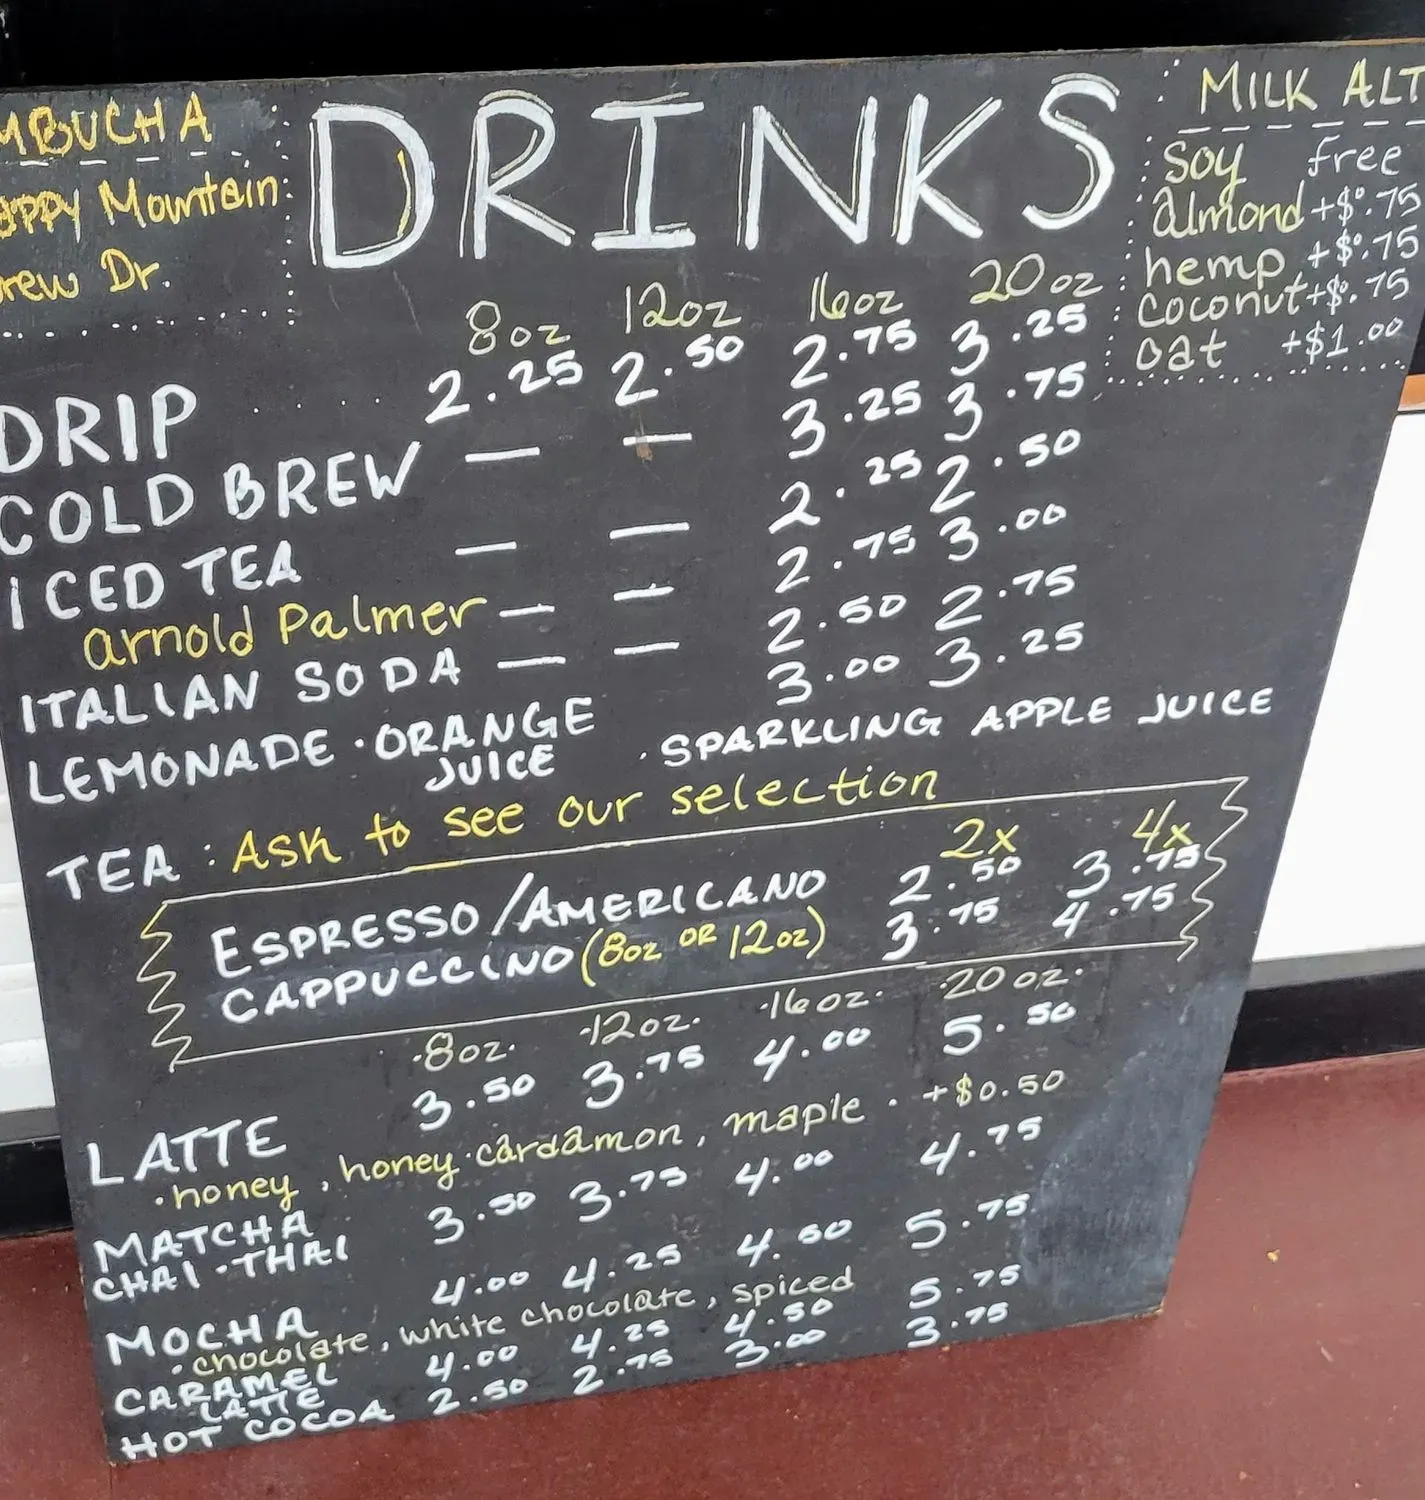 MBUCHA
appy Mountain
rew Dr.
DRINKS
MILK ALT
Soy free
almond +$0.75
hemp +$0.75
coconut +$0.75
oat +$1.00
8oz 12oz 16oz 20oz
DRIP . . . . . 2.25 2.50 2.75 3.25
COLD BREW — — 3.25 3.75
ICED TEA — — 2.25 2.50
arnold Palmer — — 2.75 3.00
ITALIAN SODA — — 2.50 2.75
LEMONADE · ORANGE JUICE · SPARKLING APPLE JUICE 3.00 3.25
TEA : Ask to see our selection
2x 4x
ESPRESSO/AMERICANO 2.50 3.75
CAPPUCCINO (8oz OR 12oz) 3.75 4.75
·8oz· ·12oz· ·16oz· ·20oz·
LATTE 3.50 3.75 4.00 5.50
· honey, honey·cardamon, maple · +$0.50
MATCHA
CHAI · THAI 3.50 3.75 4.00 4.75
MOCHA 4.00 4.25 4.50 5.75
· chocolate, white chocolate, spiced
CARAMEL LATTE 4.00 4.25 4.50 5.75
HOT COCOA 2.50 2.75 3.00 3.75